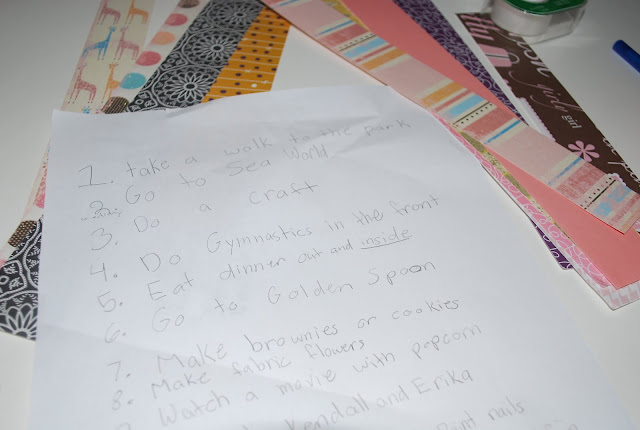 1. take a walk to the park
2. Go to Sea World
3. Do a craft
4. Do Gymnastics in the front
5. Eat dinner out and inside
6. Go to Golden Spoon
7. Make brownies or cookies
8. Make fabric flowers
Watch a movie with popcorn
Kendall and Erika
nails
girly
girl